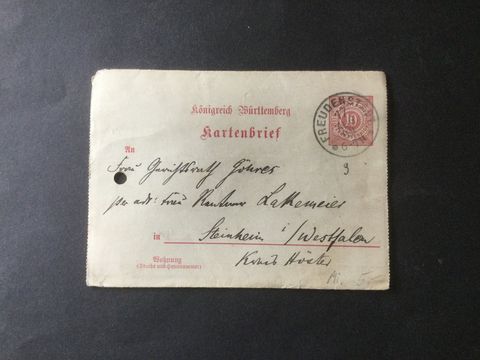 Königreich Württemberg
Kartenbrief
FREUDENSTADT
10
An
Frau Gerichtsrath Göhres
per adr: Frau Rentner Lakemeier
in Steinheim i/Westfalen
Wohnung
(Straße und Hausnummer)
Kreis Höxter
9